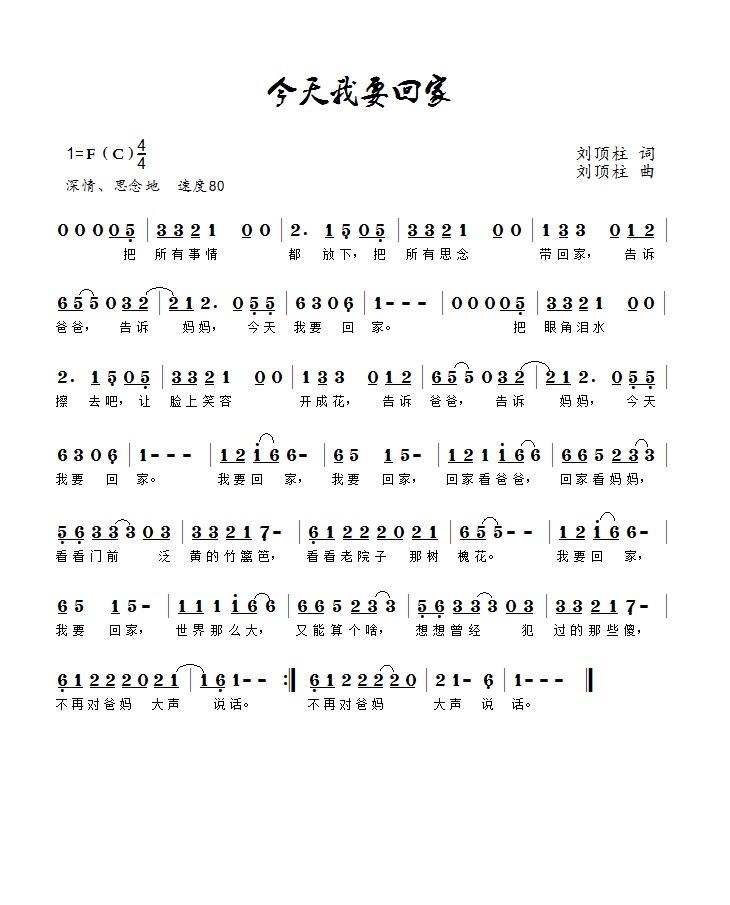 今天我要回家
1=F（C）4/4
刘顶柱 词
刘顶柱 曲
深情、思念地 速度80
0 0 0 0 5 | 3 3 2 1 0 0 | 2. 1 5 0 5 | 3 3 2 1 0 0 | 1 3 3 0 1 2 |
把 所有事情 都 放下，把 所有思念 带回家，告诉
6 5 5 0 3 2 | 2 1 2. 0 5 5 | 6 3 0 6 | 1 - - - | 0 0 0 0 5 | 3 3 2 1 0 0 |
爸爸，告诉 妈妈，今天 我要 回 家。 把 眼角泪水
2. 1 5 0 5 | 3 3 2 1 0 0 | 1 3 3 0 1 2 | 6 5 5 0 3 2 | 2 1 2. 0 5 5 |
擦 去吧，让 脸上笑容 开成花，告诉 爸爸，告诉 妈妈，今天
6 3 0 6 | 1 - - - | 1 2 i 6 6 - | 6 5 1 5 - | 1 2 1 i 6 6 | 6 6 5 2 3 3 |
我要 回 家。 我要回 家， 我要 回家， 回家看爸爸， 回家看妈妈，
5 6 3 3 3 0 3 | 3 3 2 1 7 - | 6 1 2 2 2 0 2 1 | 6 5 5 - - | 1 2 i 6 6 - |
看看门前 泛 黄的竹篱笆， 看看老院子 那树 槐花。 我要回 家，
6 5 1 5 - | 1 1 1 i 6 6 | 6 6 5 2 3 3 | 5 6 3 3 3 0 3 | 3 3 2 1 7 - |
我要 回家， 世界那么大， 又能算个啥， 想想曾经 犯 过的那些傻，
6 1 2 2 2 0 2 1 | 1 6 1 - - :‖ 6 1 2 2 2 2 0 | 2 1 - 6 | 1 - - - ‖
不再对爸妈 大声 说话。 不再对爸妈 大声 说 话。